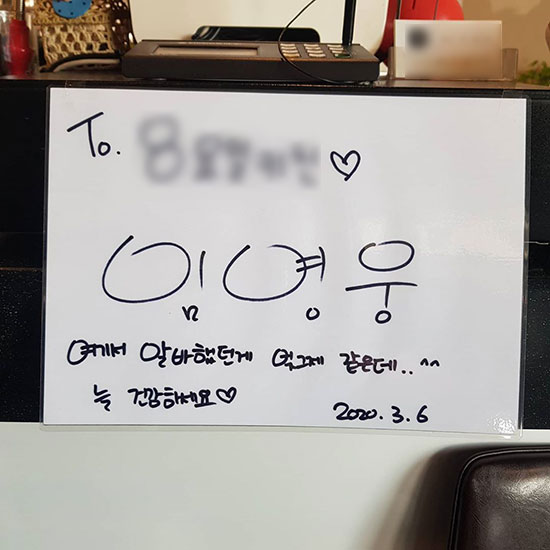 To. ♡
임영웅
여기서 알바했던게 엊그제 같은데..^^
늘 건강하세요♡
2020.3.6